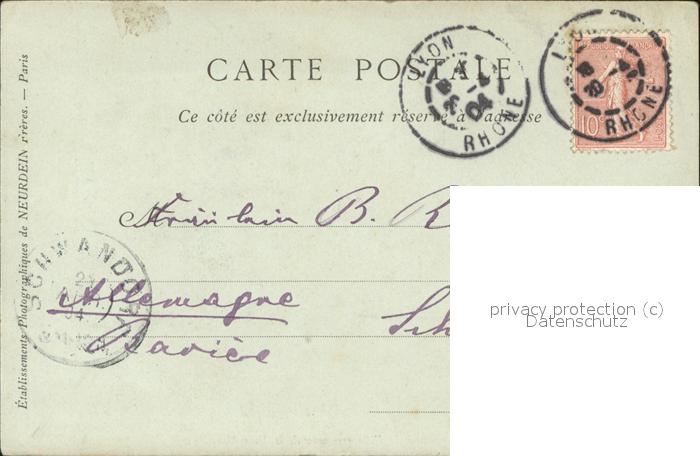 CARTE POSTALE
Ce côté est exclusivement réservé à l'adresse
LYON
RHONE
04
RHONE
10
Établissements Photographiques de NEURDEIN frères. — Paris
Fräulein B. R
SCHWANDORF
Allemagne
Bavière
Sch
privacy protection (c)
Datenschutz